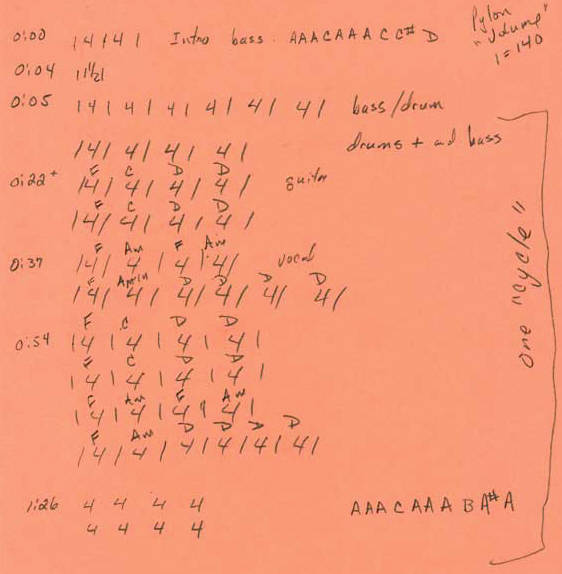 Pylon
"Volume"
1=140
0:00 | 4 | 4 | Intro bass. AAACAAACCC# D
0:04 | 1 1/2 |
0:05 | 4 | 4 | 4 | 4 | 4 | 4 | bass/drum
| 4 | 4 | 4 | 4 | drums + and bass
F C D D
0:22+ | 4 | 4 | 4 | 4 | guitar
F C D D
| 4 | 4 | 4 | 4 |
F Am F Am
0:37 | 4 | 4 | 4 | 4 | vocal
F Amin D D D D
| 4 | 4 | 4 | 4 | 4 | 4 |
F C D D
0:54 | 4 | 4 | 4 | 4 |
F C D D
| 4 | 4 | 4 | 4 |
F Am F Am
| 4 | 4 | 4 | 4 |
F Am D D D D
| 4 | 4 | 4 | 4 | 4 | 4 |
1:26 4 4 4 4 AAACAAABA#A
4 4 4 4
One "cycle"